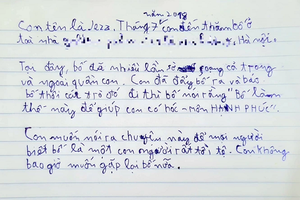 năm 2018
Con tên là Jezz. Tháng 7 con đến thăm bố ở
tại nhà Hà Nội.
Tại đây, bố đã nhiều lần sờ soạng cả trong
và ngoài quần con. Con đã đẩy bố ra và bảo
bố thôi cái trò đó đi thì bố nói rằng "Bố làm
thế này để giúp con có hóc-môn HẠNH PHÚC".
Con muốn nói ra chuyện này để mọi người
biết bố là một con người rất tồi tệ. Con không
bao giờ muốn gặp lại bố nữa.